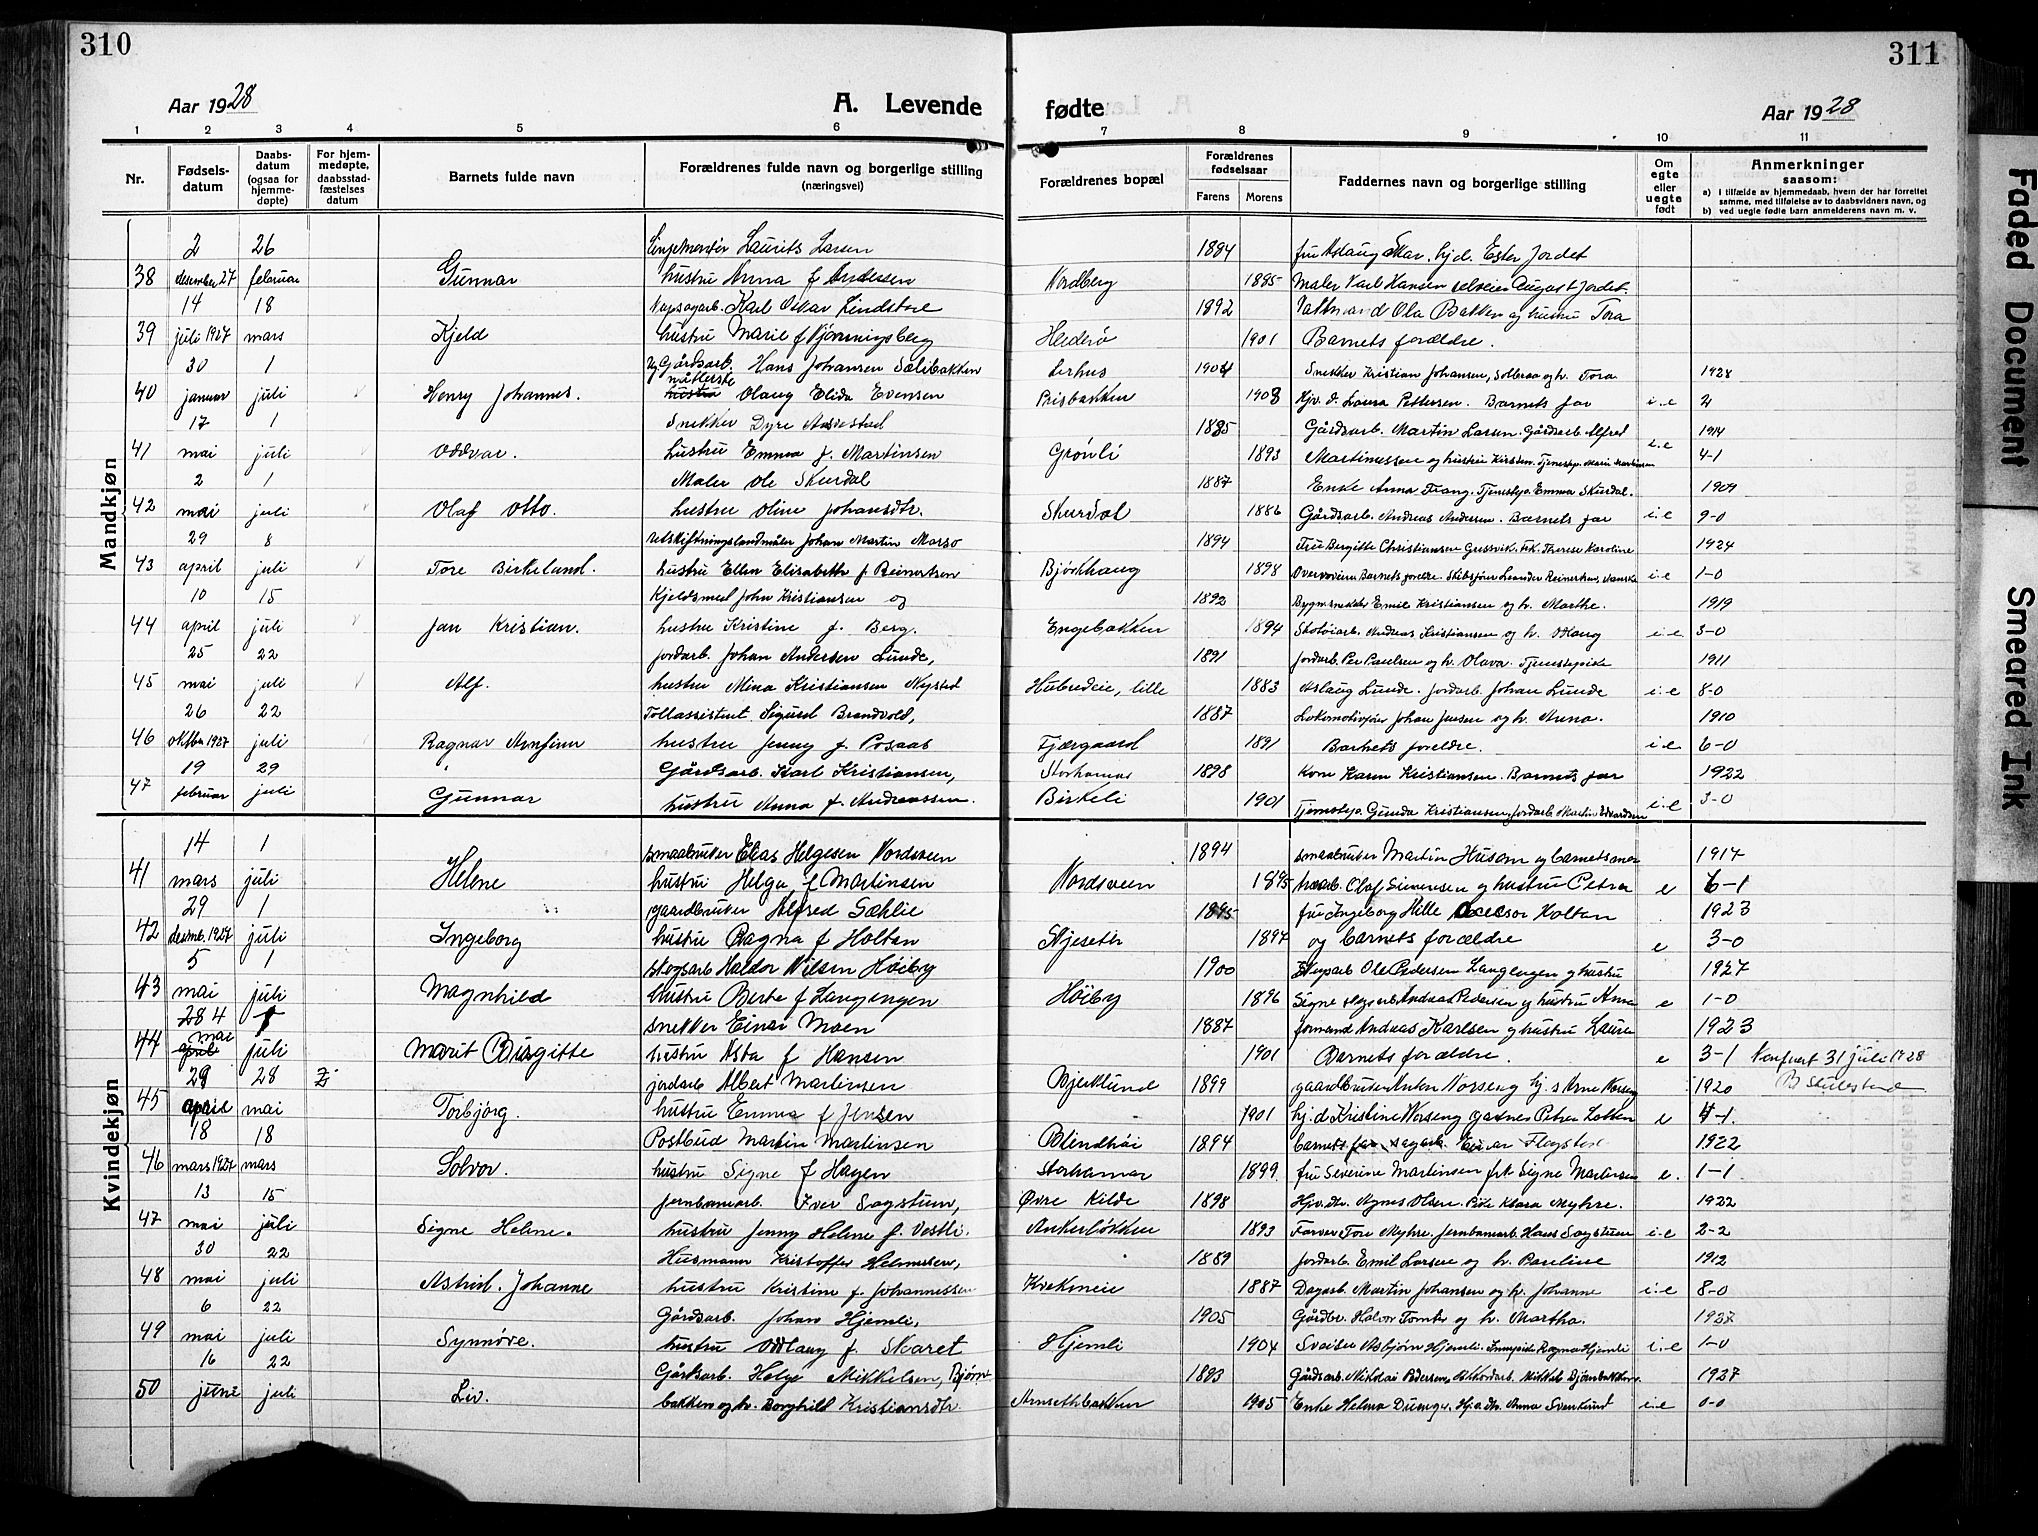 310
311
Aar 1928
A. Levende
fødte
Aar 1928
1 2 3 4 5 6 7 8 9 10 11
Nr.
Fødsels-
datum
Daabs-
datum
(ogsaa for
hjemme-
døpte)
For hjem-
medøpte,
daabsstad-
fæstelses
datum
Barnets fulde navn
Forældrenes fulde navn og borgerlige stilling
(næringsvei)
Forældrenes bopæl
Forældrenes
fødselsaar
Farens Morens
Faddernes navn og borgerlige stilling
Om
egte
eller
uegte
født
Anmerkninger
saasom:
a) I tilfælde av hjemmedaab, hvem der har forrettet
samme, med tilføielse av to daabsvidners navn, og
b) ved uegte fødte barn anmelderens navn m. v.
Mandkjøn
2 26 Laurits Larsen 1894 fru Aslaug hj.d. Ester Jordet
38 desember 27 februar Gunnar hustru Anna f Andersen Nordberg 1895 Maler Karl Hansen selveier August Jordet.
14 18 Karl Oskar Lindstøe 1892 Ola Bakken og hustru Tora
39 juli 1927 mars Kjeld hustru Marie f Hederø 1901 Barnets forældre.
30 1 Ug. Gårdsarb. Hans Johansen Sælibakken Lerhus 1904 Snekker Kristian Johansen, Solbraa og h. Tora 1928
40 januar juli Henry Johannes. hustru Olaug Elida Evensen Prisbakken 1908 Hjv. d. Laura Pettersen. Barnets far i-e 2
17 1 Snekker Dyre Aadestad 1895 Gårdsarb. Martin Larsen. Gårdsarb. Alfred 1914
41 mai juli Oddvar. hustru Emma f. Martinsen Grønli 1893 Martinussen og hustru Kirsten. Tjenestep. Marie Martinsen i-e 4-1
2 1 Maler Ole Skurdal 1887 Enke Anna Trang. Tjenestep. Emma Skurdal. 1909
42 mai juli Olaf Otto. hustru Oline Johansdtr. Skurdal 1886 Gårdsarb. Andreas Andersen. Barnets far i-e 9-0
29 8 Utskiftningslandmåler Johan Martin Marsø 1894 Fru Bergitte Christiansen Gussvik. Frk. Therese Karoline 1924
43 april juli Tore Birkeland. hustru Ellen Elisabeth f Reinertsen Bjørkhaug 1898 Barnets foreldre. Skibsfører Leander Reinertsen, i-e 1-0
10 15 Kjeldsmed John Kristiansen og 1892 Bygnsnekker Emil Kristiansen og h. Marthe. 1919
44 april juli Jan Kristian. hustru Kristine f. Berg. Engebakken 1894 Skotøiarb. Andreas Kristiansen og h. Aslaug i-e 3-0
25 22 Jordarb. Johan Andersen Lunde, 1891 Jordarb. Per Paulsen og h. Olava. Tjenestepike 1911
45 mai juli Alf. hustru Mina Kristiansen Nysted Hubredeie, lille 1883 Aslaug Lunde. Jordarb. Johan Lunde i-e 8-0
26 22 Tollassistent Sigurd Brandvold, 1887 Lokomotivfører Johan Jensen og h. Anna. 1910
46 oktbr 1927 juli Ragnar Arnfinn hustru Jenny f. Posaas Fjærgaard 1891 Barnets foreldre. i-e 6-0
19 29 Gårdsarb. Karl Kristiansen, Storhamar 1898 Kone Karen Kristiansen. Barnets far 1922
47 februar juli Gunnar hustru Anna f. Andreassen. Birkeli 1901 Tjenestep. Gunda Kristiansen, Jordarb. Martin Edvardsen i-e 3-0
Kvindekjøn
14 1 smaabruker Elias Helgesen Nordsveen 1894 smaabruker Martin Husom og barnets mor 1917
41 mars juli Helene hustru Helga f Martinsen Nordsveen 1895 Olaf Simensen og hustru Petra e 6-1
29 1 gaardbruker Alfred Sæhlie 1895 fru Ingeborg Hille Holtan 1923
42 desemb. 1927 juli Ingeborg hustru Ragna f Holtan Skjeseth 1897 og barnets forældre e 3-0
5 1 skogsarb Haldor Nilsen Høiby 1900 skogsarb Ole Pedersen Langengen og hustru 1927
43 mai juli Magnhild hustru Berte f Langengen Høiby 1896 Signe skogsarb Andreas Pedersen og hustru Anna e 1-0
28 4 1 snekker Einar Moen 1887 formand Andreas Karlsen og hustru Laura 1923
44 mai april juli Marit Birgitte hustru Asta f Hansen 1901 Barnets forældre. e 3-1 Konfrert 31 juli 1928
29 28 jordarb Albert Martinsen Bjerklund 1899 gaardbruker Anton Norseng hj. s Arne Norseng 1920
45 april mai Torbjørg. hustru Emma f Jensen 1901 hj.d Kristine Norseng gartner Petter Løkken e 4-1.
18 18 Postbud Martin Martinsen Blindhøi 1894 Barnets far sagarb. Einar Flagstad 1922
46 mars 1927 mars Solvor. hustru Signe f Hagen Storhamar 1899 fru Severine Martinsen frk Signe Martinsen e. 1-1
13 15 Jernbanearb. Iver Sagstuen, Øvre Kilde 1898 Hjv. dtr. Agnes Olsen. Pike Klara Myhre. 1922
47 mai juli Signe Helene. hustru Jenny Helene f. Vestli. Ankerløkken 1893 Farver Tore Myhre. Jernbanearb. Hans Sagstuen i-e 2-2
30 22 Husmann Kristoffer Helmersen, 1889 Jordarb. Emil Larsen og h. Pauline 1912
48 mai juli Astrid Johanne hustru Kristine f. Johannessen Kvekmeie 1887 Dagarb. Martin Johansen og h. Johanne i-e 8-0
6 22 Gårdsarb. Johan Hjemli, 1905 Gårdbr. Halvor Tomter og h. Martha. 1927
49 mai juli Synnøve. hustru Oddlaug f. Skaret Hjemli 1904 Sveiser Asbjørn Hjemli. Innepike Ragna Hjemli i-e 1-0
16 22 Gårdsarb. Helge Mikkelsen, Bjørne- 1883 Gårdsarb. Nikolai Pedersen, Akkordarb. Mikkel Bjørnebakken. 1927
50 juni juli Liv. bakken og h. Borghild Kristiansdtr. Arnsethbakken 1905 Enke Helena Dunga. Hj.v. dtr. Anna Svenkerud i-e 0-0
Faded Document
Smeared Ink